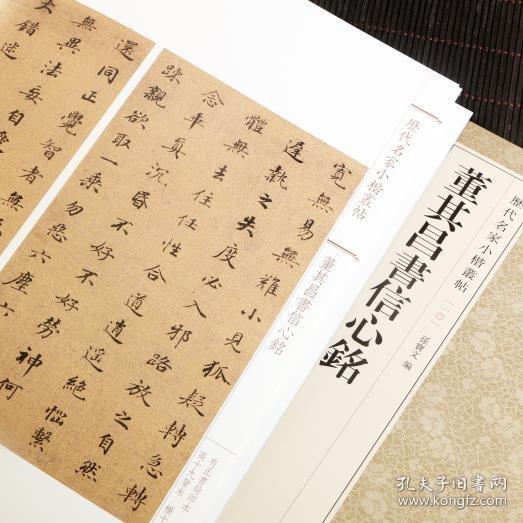 寬無易無難小見狐疑轉急轉
遲執之失度必入邪路放之自然
體無去住任性合道逍遙絕惱繫
念乖真沉昏不好不好勞神何
疎親欲取一乘勿惡六塵六
還同正覺智者無
無異法妄自
大錯迷
歷代名家小楷叢帖
董其昌書信心銘
有正書局印本
高十九釐米
歷代名家小楷叢帖（一〇）
董其昌書信心銘
孫寶文 编
孔夫子旧书网
www.kongfz.com